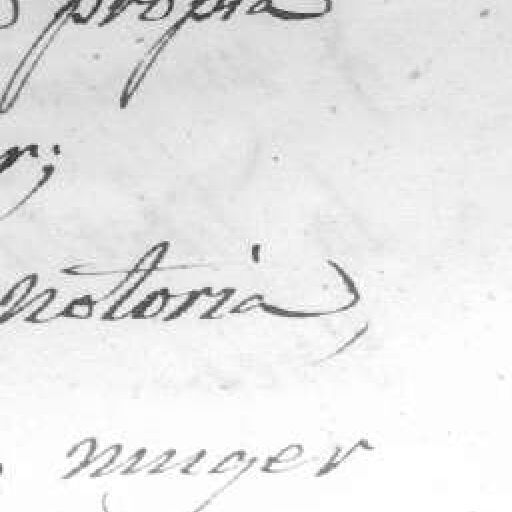 propia
r;
notoria,
muger